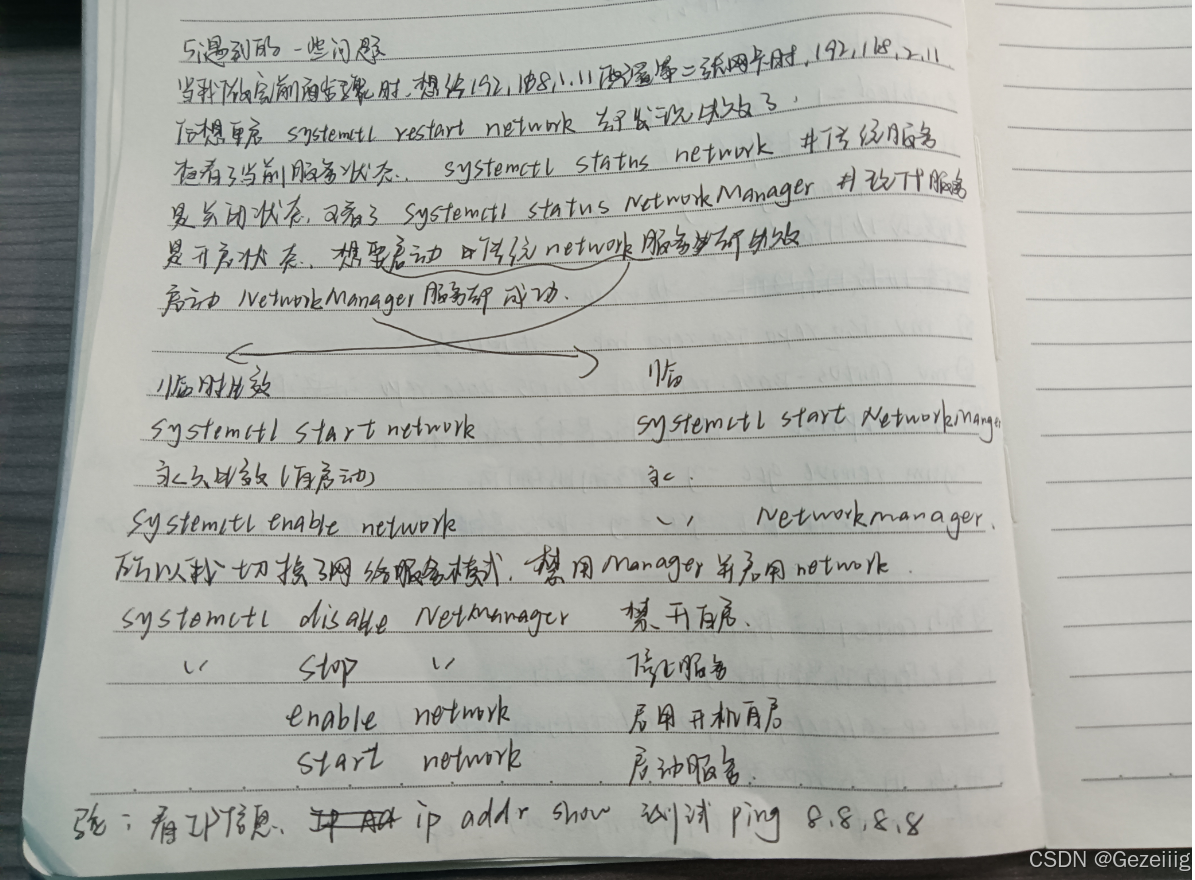 5.遇到的一些问题
当我做完前面步骤时,想给192,168,1.11配置第二张网卡时,192,168,2.11
在想重启 systemctl restart network 却发现失效了.
查看了当前服务状态. systemctl status network #传统服务
是关动状态,又看了 systemctl status NetworkManager #现代服务
是开启状态. 想要启动传统network服务却失效
启动NetworkManager服务却成功.
临时生效 临
systemctl start network systemctl start NetworkManager
永久生效(自启动) 永.
systemctl enable network 〃 Networkmanager.
所以我切换了网络服务模式.禁用Manager并启用network.
systemctl disable NetManager 禁开自启.
〃 stop 〃 停止服务
enable network 启用开机自启
start network 启动服务.
:看IP信息. ip addr show 测试 ping 8,8,8,8
CSDN @Gezeiiig